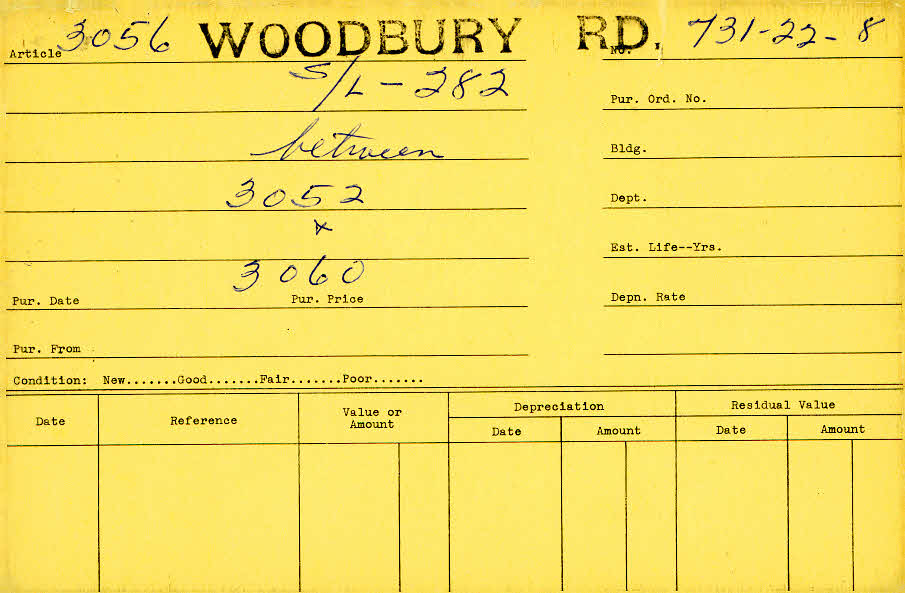 Article 3056 WOODBURY RD. No. 731-22-8
S/L-282
Pur. Ord. No.
between
Bldg.
3052
Dept.
&
Est. Life--Yrs.
3060
Pur. Date Pur. Price Depn. Rate
Pur. From
Condition: New.......Good.......Fair.......Poor.......
Date Reference Value or Amount Depreciation Residual Value
Date Amount Date Amount